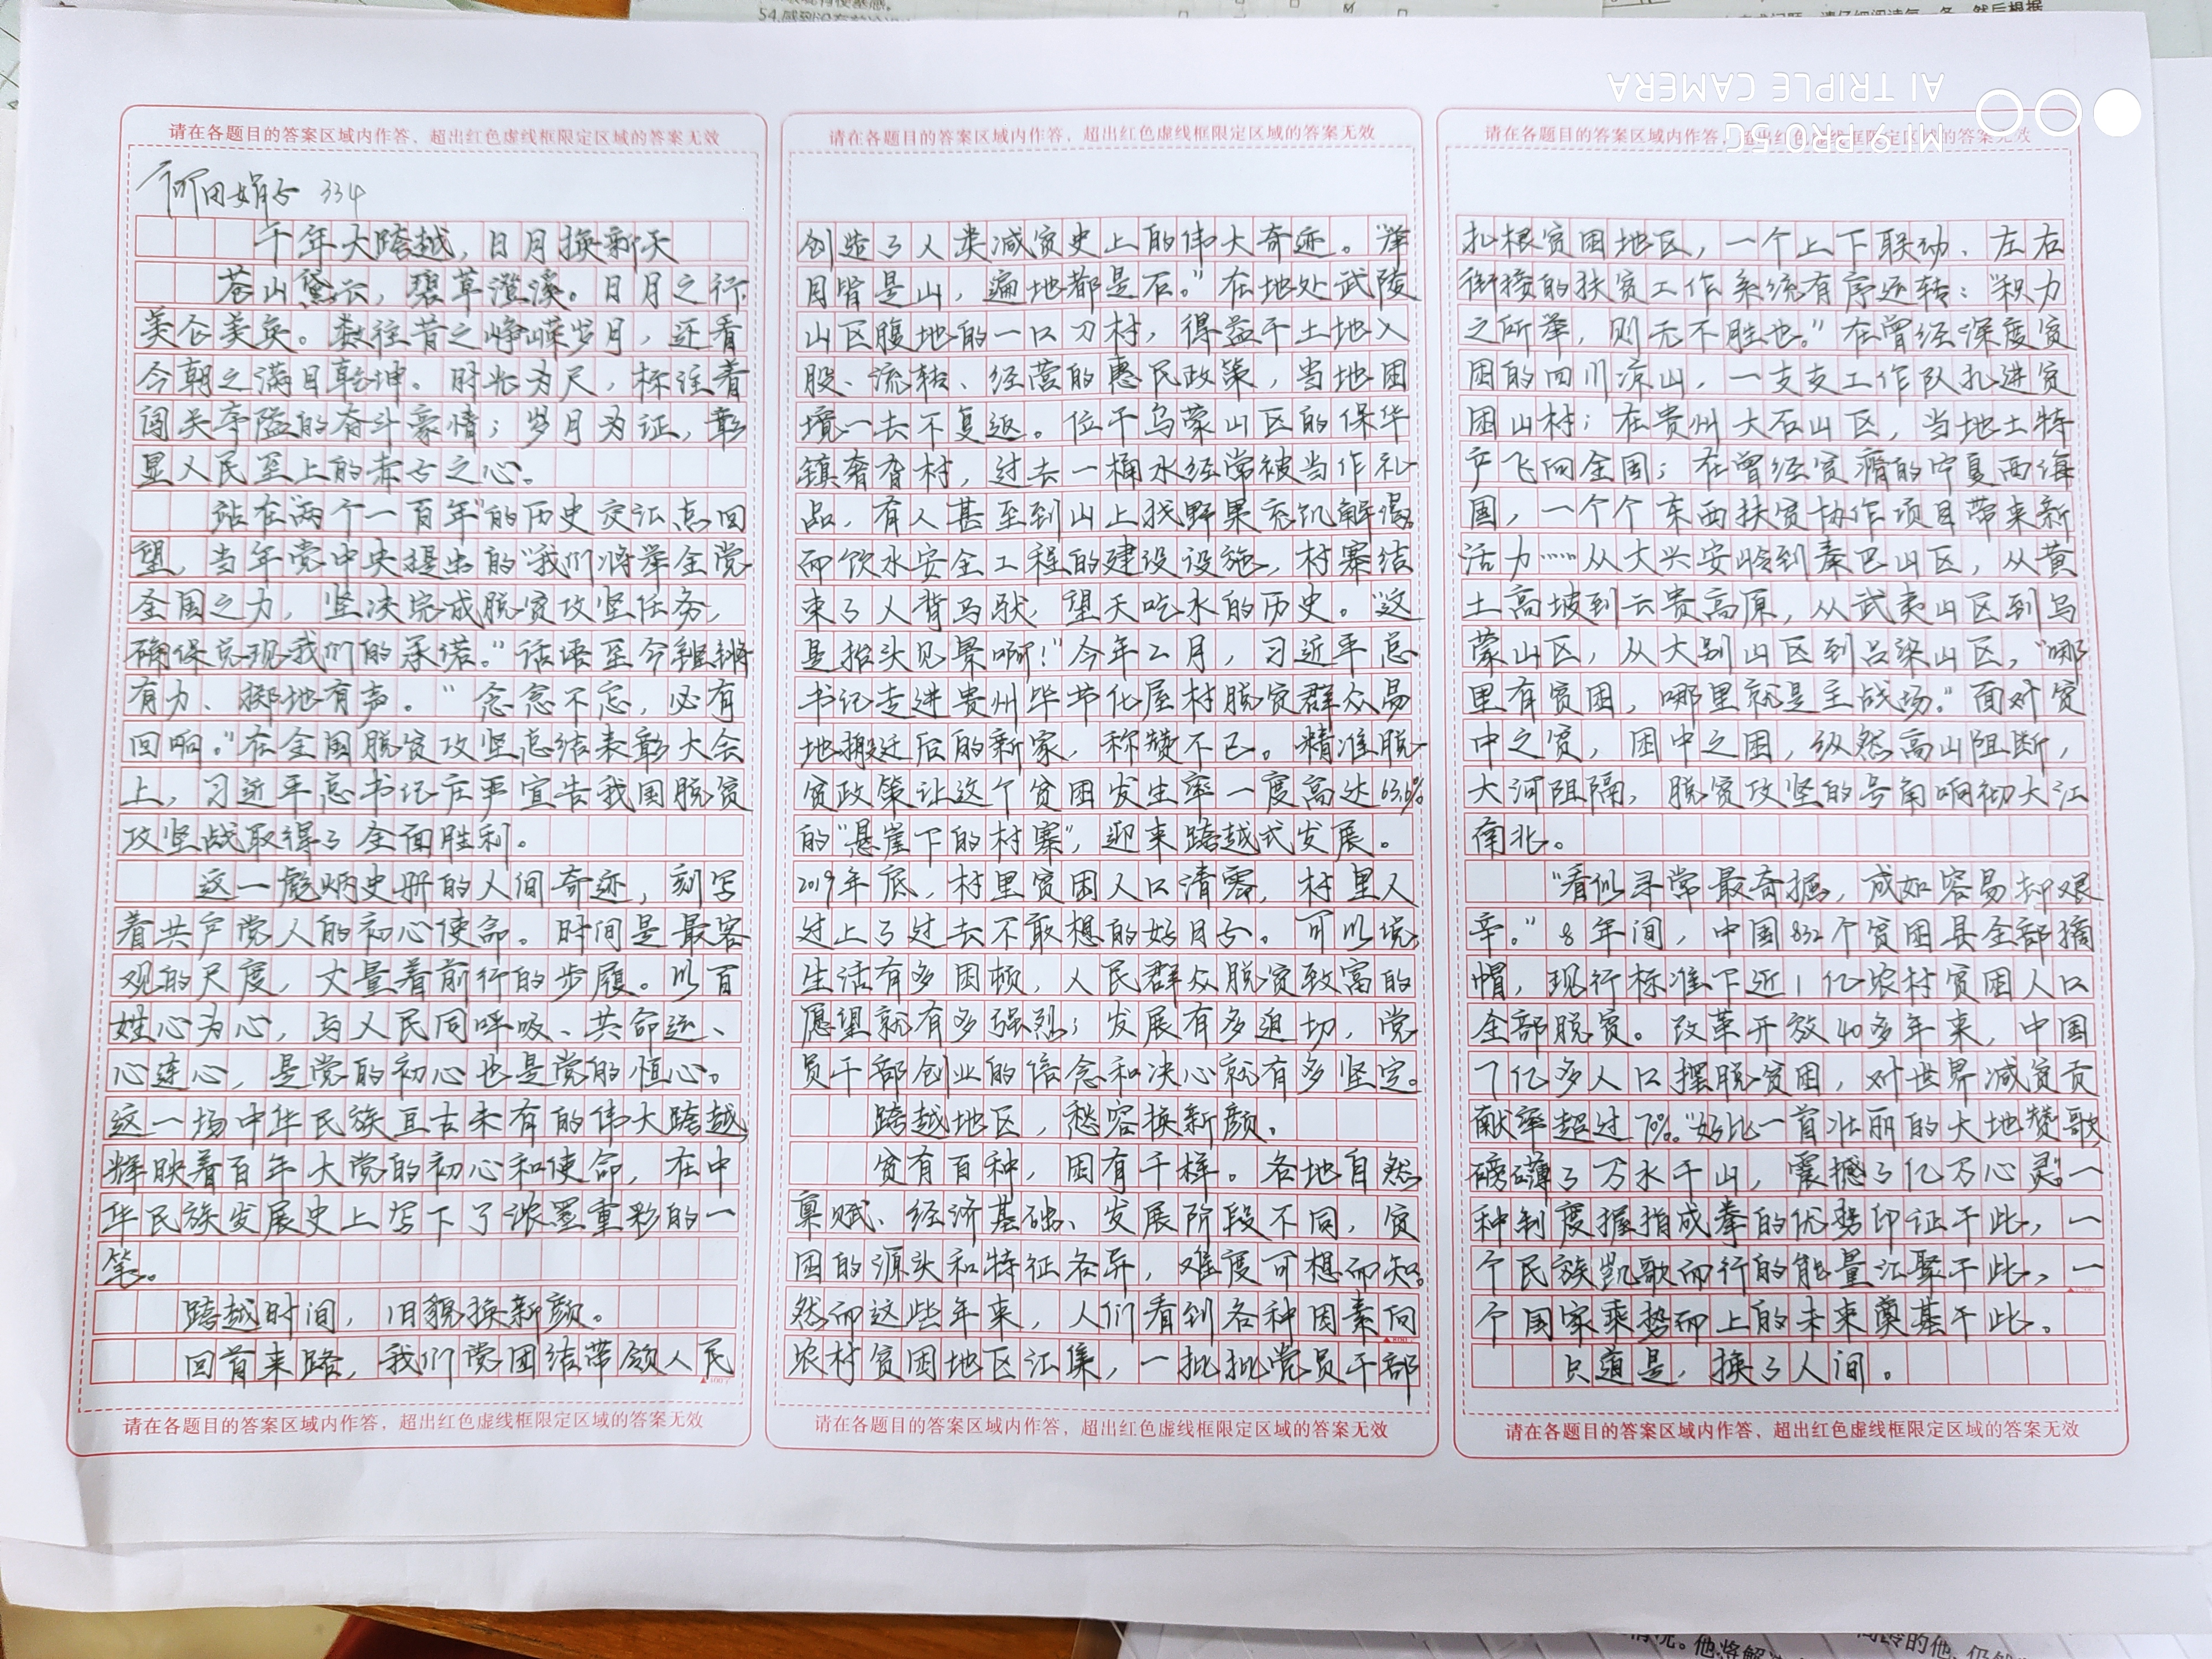 请在各题目的答案区域内作答，超出红色虚线框限定区域的答案无效
334
千年大跨越，日月换新天
苍山黛云，碧草澄溪。日月之行
美仑美奂。数往昔之峥嵘岁月，还看
今朝之满目乾坤。时光为尺，标注着
闯关夺隘的奋斗豪情；岁月为证，彰
显人民至上的赤子之心。
站在“两个一百年”的历史交汇点回
望，当年党中央提出的“我们将举全党
全国之力，坚决完成脱贫攻坚任务，
确保兑现我们的承诺。”话语至今铿锵
有力、掷地有声。“念念不忘，必有
回响。”在全国脱贫攻坚总结表彰大会
上，习近平总书记庄严宣告我国脱贫
攻坚战取得了全面胜利。
这一彪炳史册的人间奇迹，刻写
着共产党人的初心使命。时间是最客
观的尺度，丈量着前行的步履。以百
姓心为心，与人民同呼吸、共命运、
心连心，是党的初心也是党的恒心。
这一场中华民族亘古未有的伟大跨越，
辉映着百年大党的初心和使命，在中
华民族发展史上写下了浓墨重彩的一
笔。
跨越时间，旧貌换新颜。
回首来路，我们党团结带领人民
请在各题目的答案区域内作答，超出红色虚线框限定区域的答案无效
请在各题目的答案区域内作答，超出红色虚线框限定区域的答案无效
创造了人类减贫史上的伟大奇迹。“举
目皆是山，遍地都是石。”在地处武陵
山区腹地的一口刀村，得益于土地入
股、流转、经营的惠民政策，当地困
境一去不复返。位于乌蒙山区的保华
镇奢旮村，过去一桶水经常被当作礼
品，有人甚至到山上找野果充饥解渴。
而饮水安全工程的建设设施，村寨结
束了人背马驮，望天吃水的历史。“这
是抬头见景啊！”今年二月，习近平总
书记走进贵州毕节化屋村脱贫群众易
地搬迁后的新家，称赞不已。精准脱
贫政策让这个贫困发生率一度高达63.6%
的“悬崖下的村寨”，迎来跨越式发展。
2019年底，村里贫困人口清零，村里人
过上了过去不敢想的好日子。可以说，
生活有多困顿，人民群众脱贫致富的
愿望就有多强烈；发展有多迫切，党
员干部创业的信念和决心就有多坚定。
跨越地区，愁容换新颜。
贫有百种，困有千样。各地自然
禀赋、经济基础、发展阶段不同，贫
困的源头和特征各异，难度可想而知。
然而这些年来，人们看到各种因素向
农村贫困地区汇集，一批批党员干部
请在各题目的答案区域内作答，超出红色虚线框限定区域的答案无效
请在各题目的答案区域内作答，超出红色虚线框限定区域的答案无效
扎根贫困地区，一个上下联动、左右
衔接的扶贫工作系统有序运转：“积力
之所举，则无不胜也。”在曾经深度贫
困的四川凉山，一支支工作队扎进贫
困山村；在贵州大石山区，当地土特
产飞向全国；在曾经贫瘠的宁夏西海
固，一个个东西扶贫协作项目带来新
活力……从大兴安岭到秦巴山区，从黄
土高坡到云贵高原，从武夷山区到乌
蒙山区，从大别山区到吕梁山区，“哪
里有贫困，哪里就是主战场。”面对贫
中之贫，困中之困，纵然高山阻断，
大河阻隔，脱贫攻坚的号角响彻大江
南北。
“看似寻常最奇掘，成如容易却艰
辛。”8年间，中国832个贫困县全部摘
帽，现行标准下近1亿农村贫困人口
全部脱贫。改革开放40多年来，中国
7亿多人口摆脱贫困，对世界减贫贡
献率超过70%。“好比一首壮丽的大地赞歌
磅礴了万水千山，震撼了亿万心灵。”一
种制度握指成拳的优势印证于此，一
个民族凯歌而行的能量汇聚于此，一
个国家乘势而上的未来奠基于此。
只道是，换了人间。
请在各题目的答案区域内作答，超出红色虚线框限定区域的答案无效
MI 9 PRO 5G
AI TRIPLE CAMERA